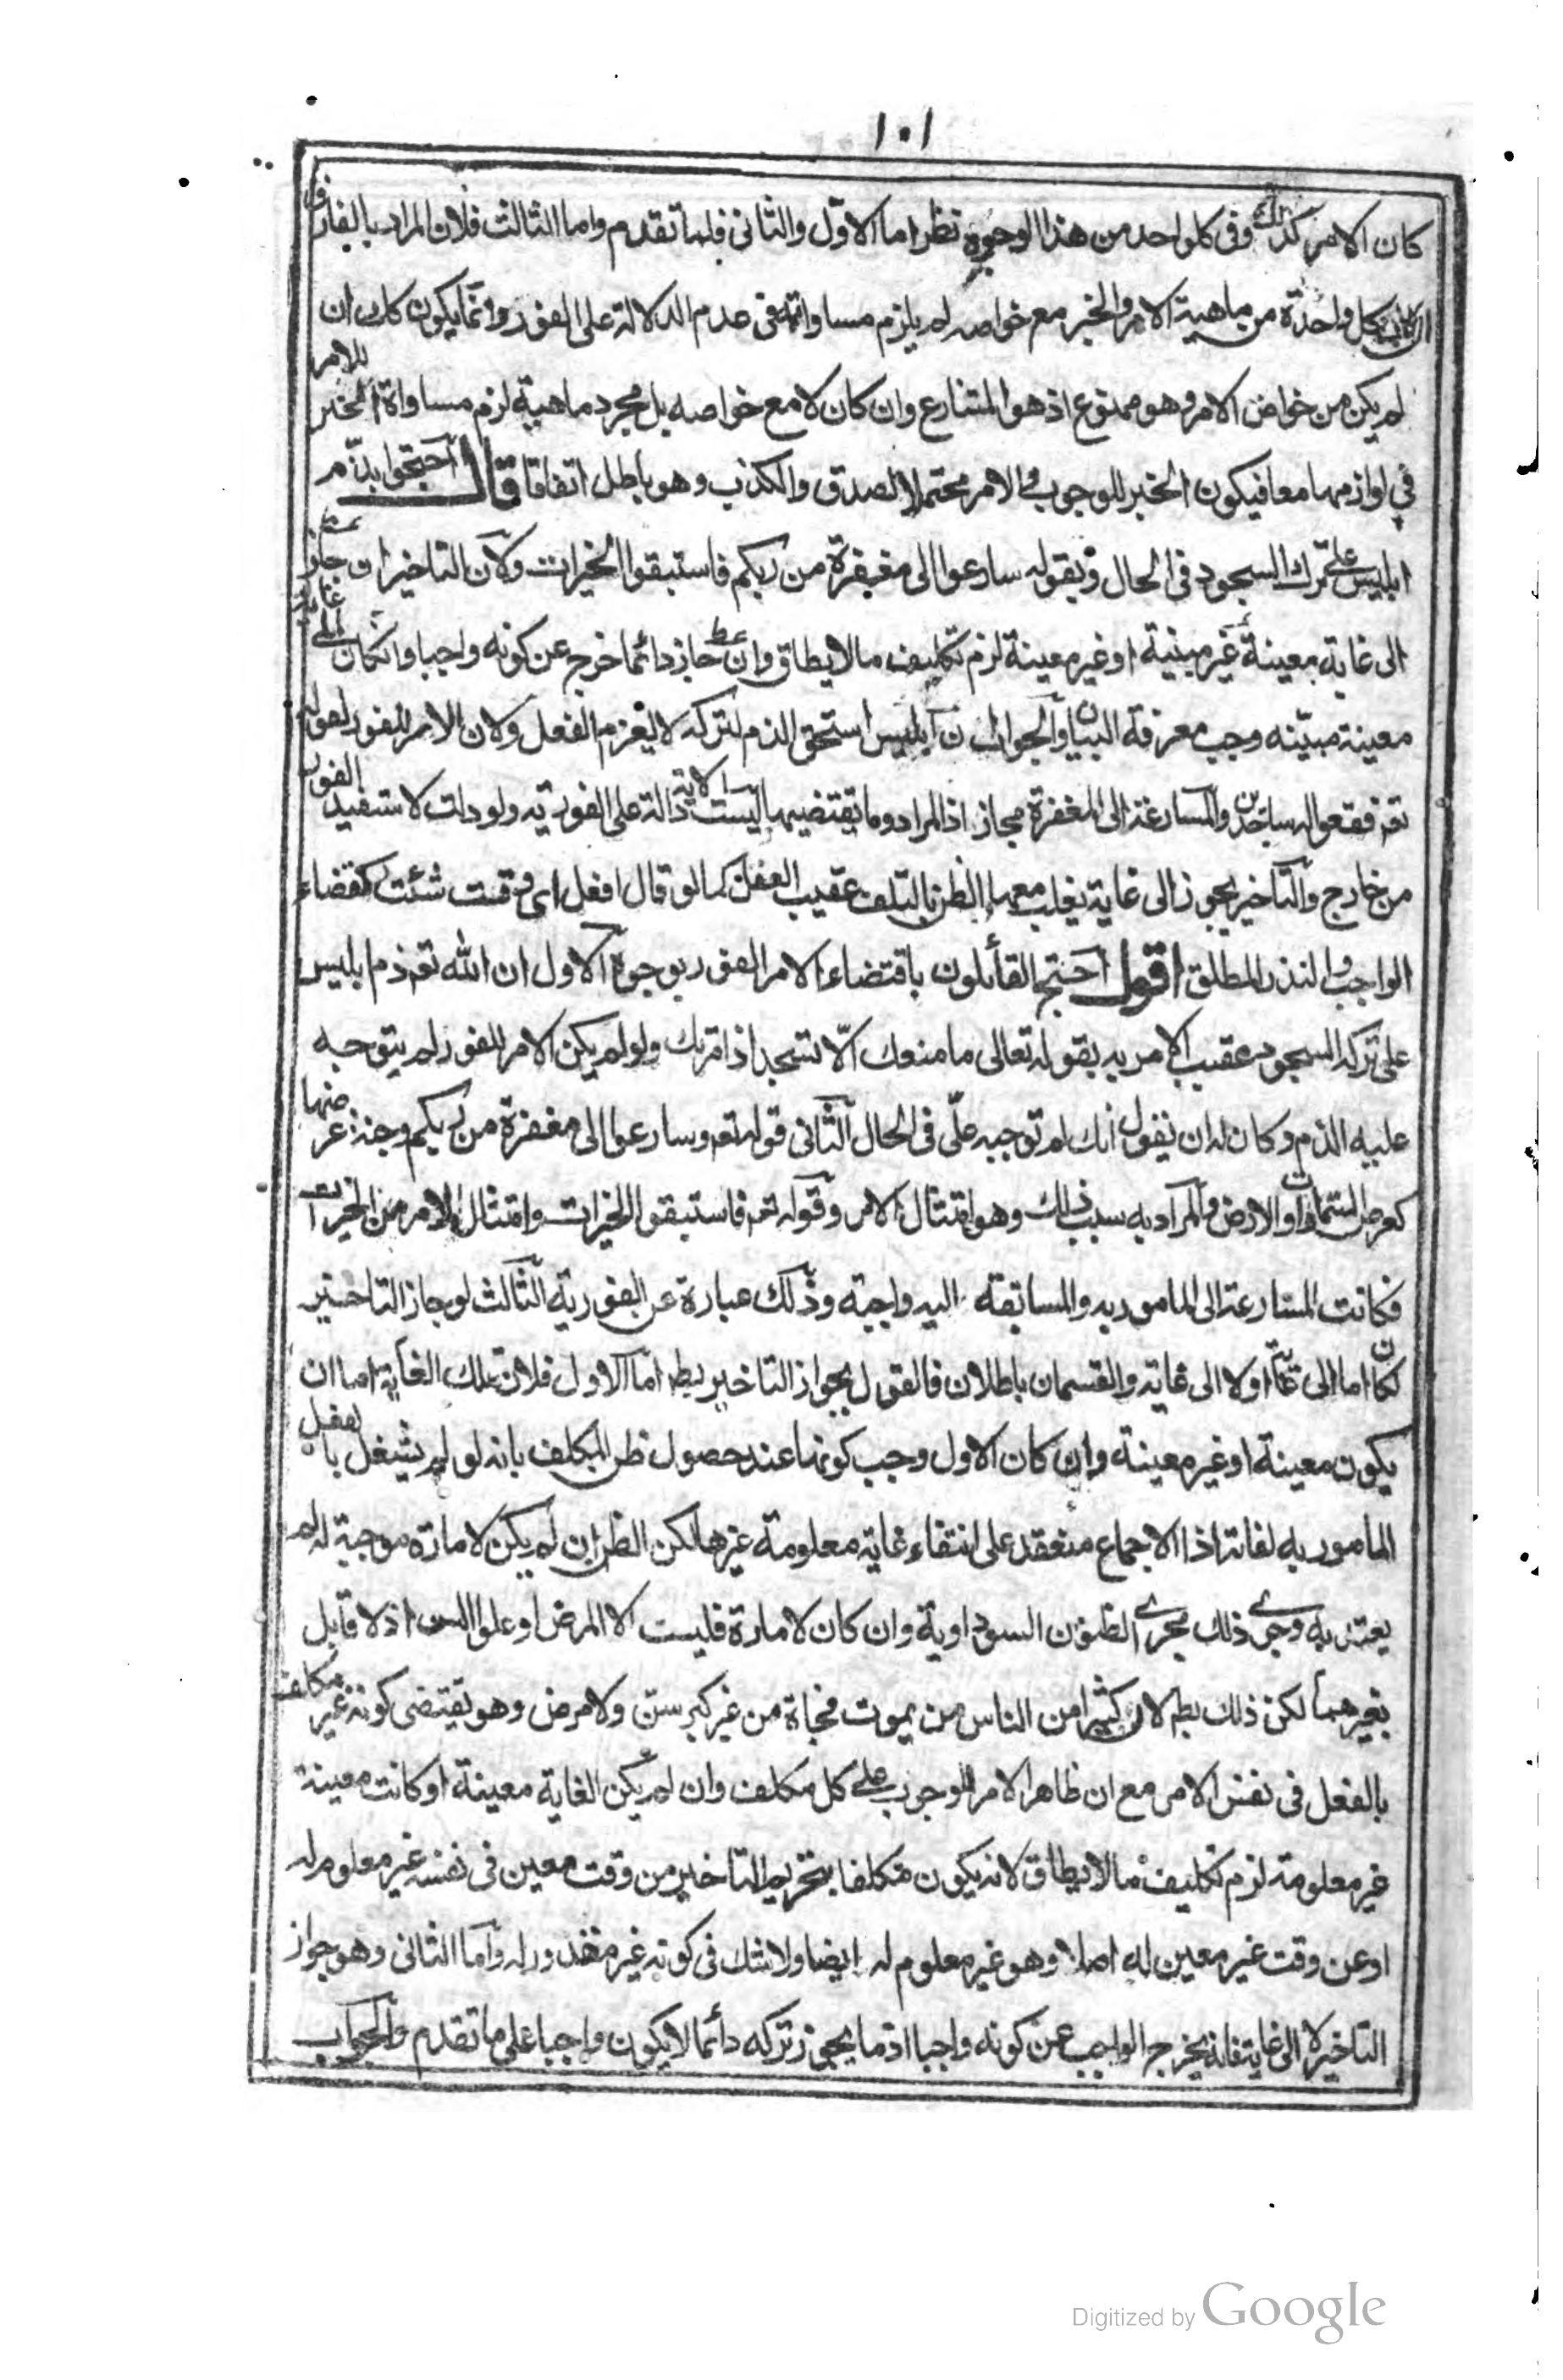 ١٠١
كان الامر كذلك وفى كل واحد من هذا الوجوه نظر اما الاوّل والثانى فلما تقدم واما الثالث فلان المراد بالفارق
ان كان كل واحدة من ماهية الامر والخبر مع خواصه لم يلزم مساواته فى عدم الدلالة على الفور وانما يكون كك ان
لم يكن من خواص الامر وهو ممنوع اذ هو المتنازع وان كان لا مع خواصه بل مجرد ماهية لزم مساواة الخبر للامر
فى لوازمهما معا فيكون الخبر للوجوب والامر محتملا للصدق والكذب وهو باطل اتفاقا قال احتجوا بذم
ابليس على ترك السجود فى الحال وبقوله سارعوا الى مغفرة من ربكم فاستبقوا الخيرات ولان التاخير ان جاز
الى غاية معينة غير مبنية او غير معينة لزم تكليف ما لا يطاق وان جاز دائما خرج عن كونه واجبا وان كان الى غاية
معينة مبيّنه وجب معرفة البيان والجواب ان ابليس استحق الذم لتركه لا لعزم الفعل ولان الامر للفور لقوله
تعم فقعوا له ساجدين والمسارعة الى المغفرة مجاز اذ المراد وما يقتضيها ليست الاية دالة على الفورية ولو دلت لاستفيد الفور
من خارج والتاخير يجوز الى غاية يغلب معها الظن بالتلف عقيب الفعل كما لو قال افعل اى وقت شئت كقضاء
الواجب والنذر المطلق اقول احتج القائلون باقتضاء الامر الفور بوجوه الاول ان الله تعم ذم ابليس
على تركه السجود عقيب الامر به بقوله تعالى ما منعك الّا تسجد اذ امرتك ولو لم يكن الامر للفور لم يتوجه
عليه الذم وكان له ان يقول انك لم توجبه علّى فى الحال الثانى قوله تعم وسارعوا الى مغفرة من ربكم وجنة عرضها
كعرض السماوات والارض والمراد به سبب ذلك وهو امتثال الامر وقوله تعم فاستبقوا الخيرات وامتثال الامر من الخيرات
فكانت المسارعة الى المامور به والمسابقة اليه واجبة وذلك عبارة عن الفورية الثالث لو جاز التاخير
لكان اما الى غاية او لا الى غاية والقسمان باطلان فالقول بجواز التاخير بط اما الاول فلان تلك الغاية اما ان
يكون معينة او غير معينة وان كان الاول وجب كونها عند حصول ظن المكلف بانه لو لم يشتغل بالفعل
المامور به لفاته اذا الاجماع منعقد على انتفاء غاية معلومة غيرها لكن الظن ان لم يكن لامارة موجبة له لم
يعتد به وجرى ذلك مجرى الظنون السوداوية وان كان لامارة فليست الا المرض او علو السن اذ لا قايل
بغيرهما لكن ذلك بط لان كثيرا من الناس من يموت فجاة من غير كبر سن ولا مرض وهو يقتضى كونه غير مكلف
بالفعل فى نفس الامر مع ان ظاهر الامر الوجوب على كل مكلف وان لم يكن الغاية معينة او كانت معينة
غير معلومة لزم تكليف ما لا يطاق لانه يكون مكلفا بتحريم التاخير من وقت معين فى نفسه غير معلوم له
او عن وقت غير معين له اصلا وهو غير معلوم له ايضا ولا شك فى كونه غير مقدور له واما الثانى وهو جواز
التاخير لا الى غاية فانه يخرج الواجب عن كونه واجبا اذ ما يجوز تركه دائما لا يكون واجبا على ما تقدم والجواب
Digitized by Google